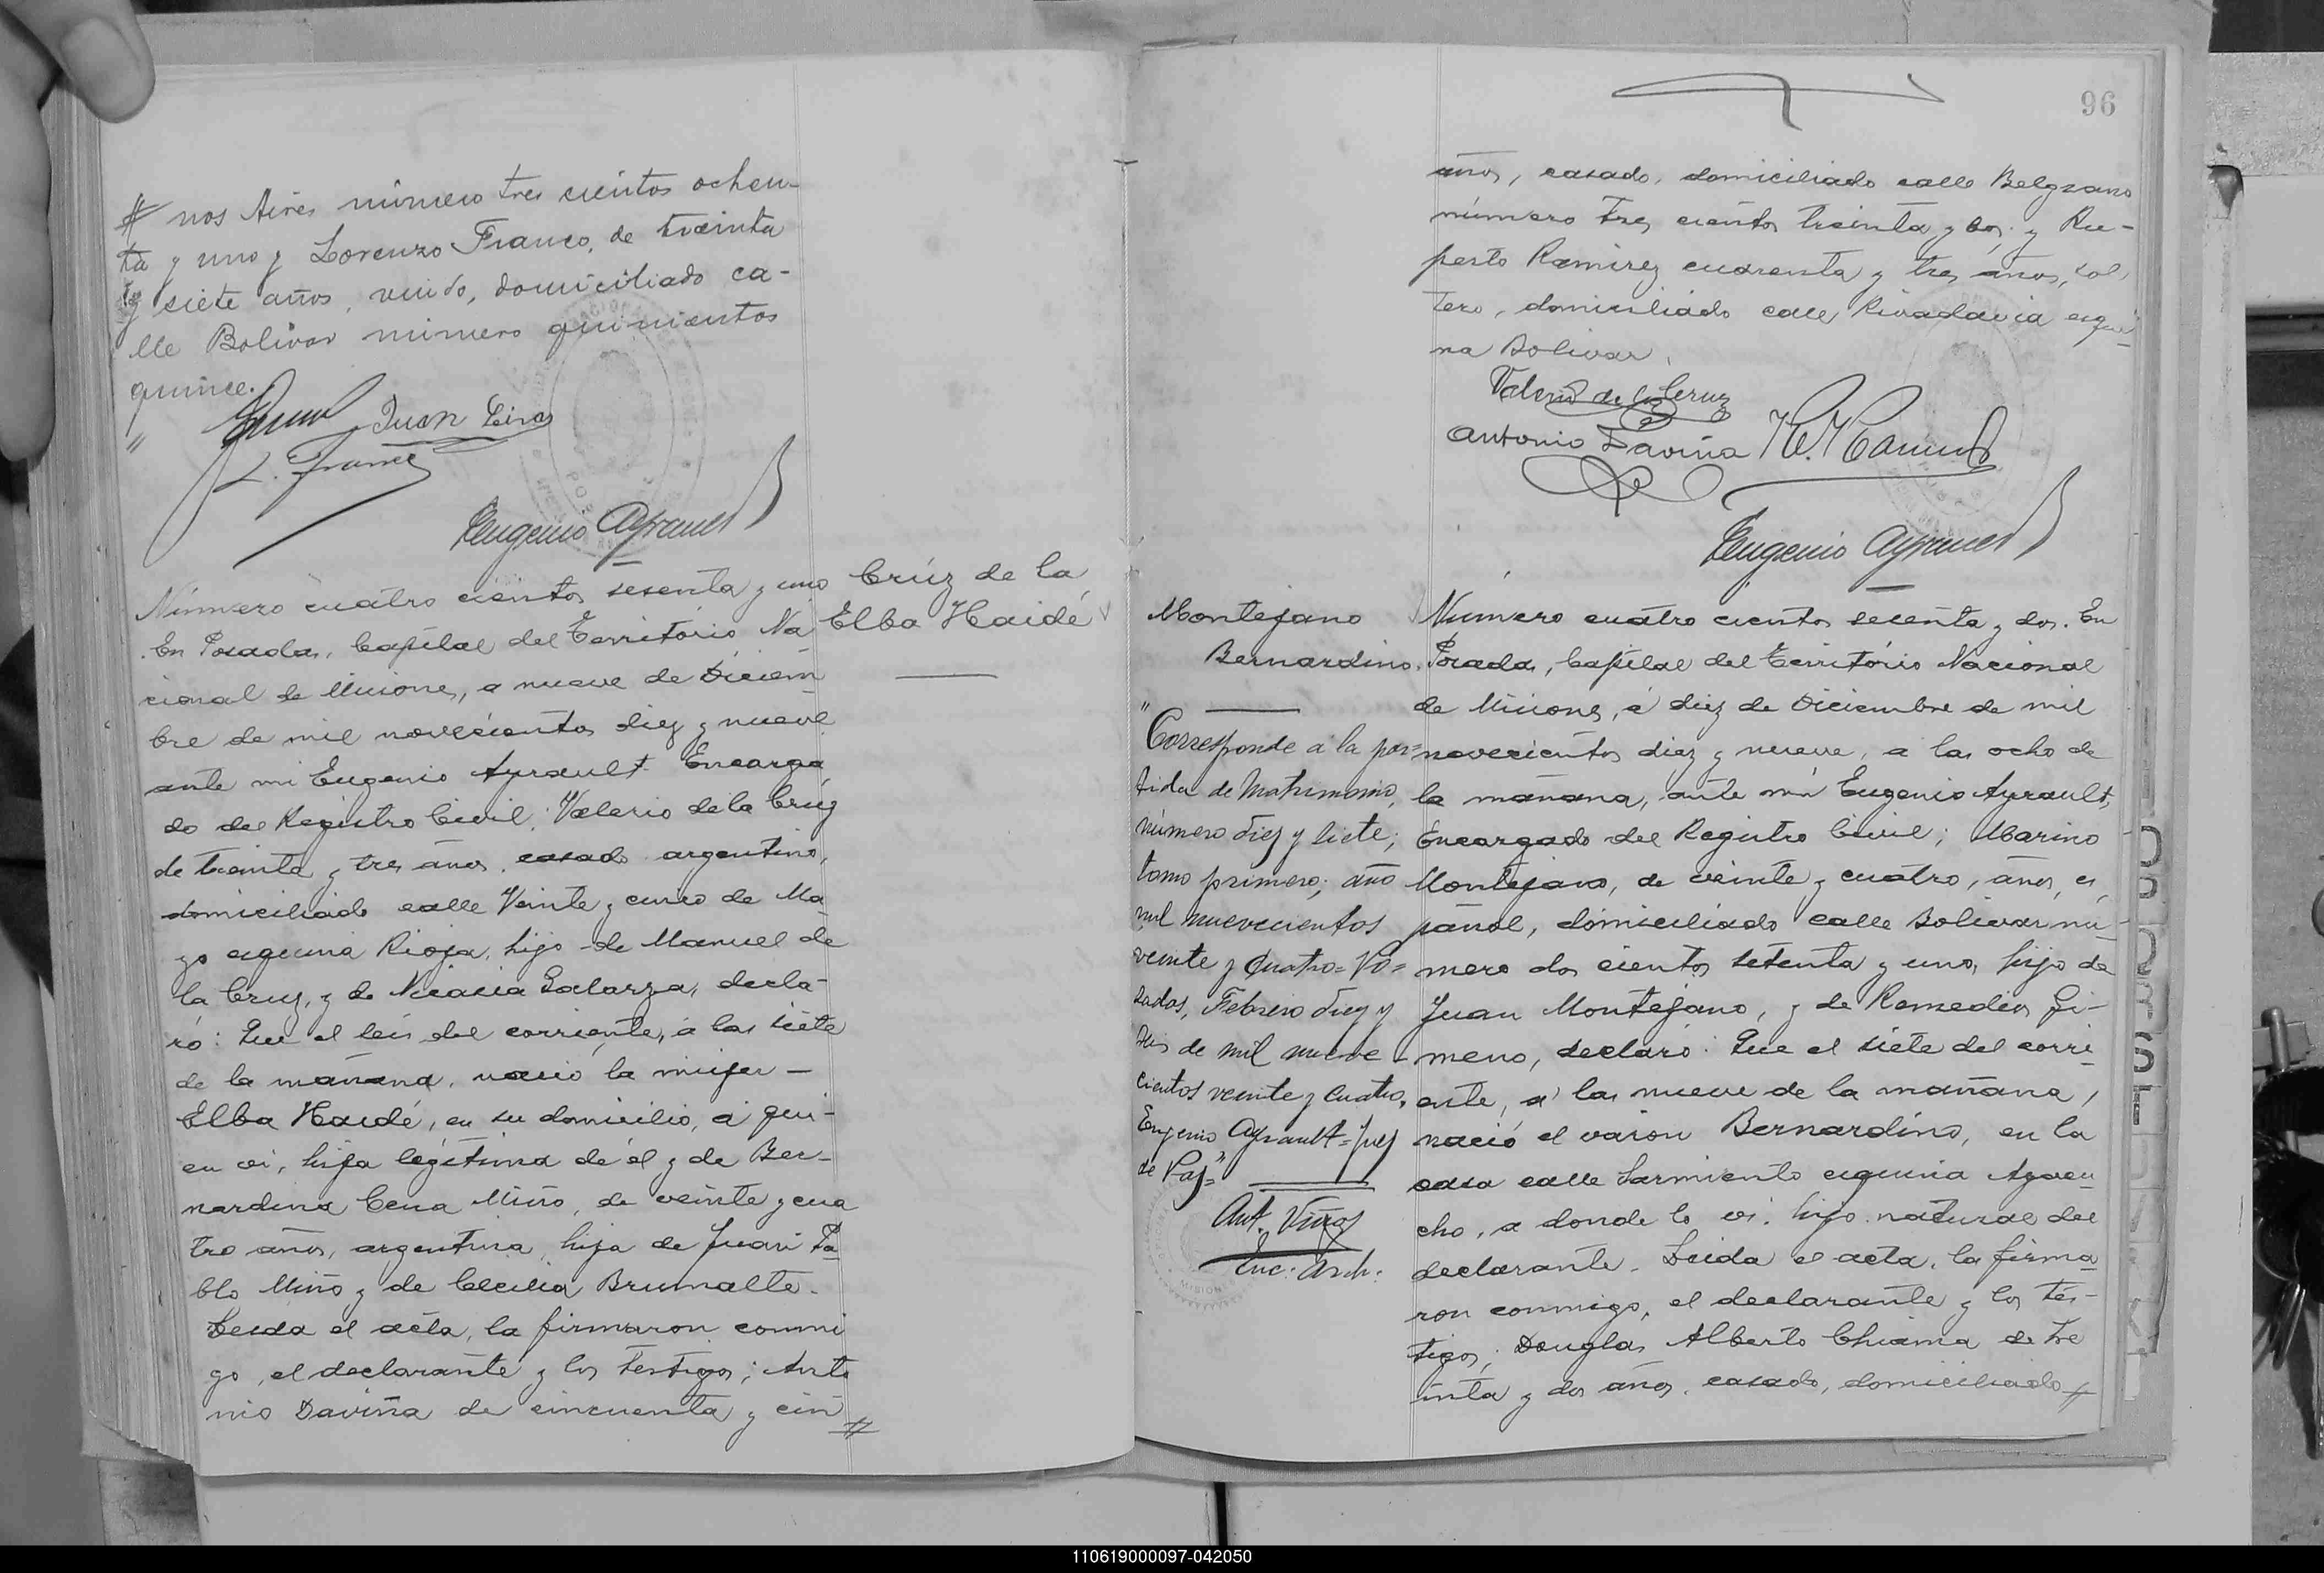 # nos Aires número tres cientos ochen-
ta y uno y Lorenzo Franco, de treinta
y siete años, viudo, domiciliado ca-
lle Bolivar número quinientos
quince.
" Juan Leiva
L. Franco
Eugenio Ayrault
Número cuatro cientos sesenta y uno
En Posadas, Capital del Território Na
cional de Misiones, a nueve de Diciem
bre de mil novecientos diez y nueve
ante mi Eugenio Ayrault Encarga
do del Registro Civil, Valerio de la Crúz
de treinta y tres años, casado argentino,
domiciliado calle Veinte y cinco de Ma
yo esquina Rioja, hijo de Manuel de
la Cruz, y de Nicasia Galarza, decla-
ró: Que el seis del corriente, a las siete
de la mañana, nació la mujer —
Elba Haidé, en su domicilio, á qui-
en vi, hija legítima de él y de Ber-
nardina Cena Miño, de veinte y cua
tro años, argentina, hija de Juan Pa
blo Miño y de Cecilia Brumalte.
Leida el acta, la firmaron conmi
go, el declarante y los testigos; Anto
nio Daviña de cincuenta y cin #
Crúz de la
Elba Haidé
96
años, casado, domiciliado calle Belgrano
número tres cientos treinta y dos y Ru-
perto Ramirez cuarenta y tres años, sol
tero, domiciliado calle Rivadavia esqui-
na Bolivar.
Valerio de la Cruz
Antonio Daviña R. Ramirez
Eugenio Ayrault
Montejano
Bernardino.
"Corresponde a la par=
tida de Matrimonio,
número diez y siete;
tomo primero; año
mil nuevecientos
veinte y cuatro = Po=
sadas, Febrero diez y
seis de mil nueve-
cientos veinte y cuatro.
Eugenio Ayrault = Juez
de Paz="
Ant. Viñas
Enc. Arch.
Número cuatro cientos sesenta y dos. En
Posadas, Capital del Território Nacional
de Misiones, á diez de Diciembre de mil
novecientos diez y nueve, a las ocho de
la mañana, ante mi Eugenio Ayrault,
Encargado del Registro Civil; Marino
Montejano, de veinte y cuatro, años, es
pañol, domiciliado calle Bolivar nú-
mero dos cientos setenta y uno, hijo de
Juan Montejano, y de Remedios Gi-
meno, declaró: Que el siete del corri
ente, a las nueve de la mañana,
nació el varon Bernardino, en la
casa calle Sarmiento esquina Ayacu
cho, a donde lo vi, hijo natural del
declarante. Leida el acta, la firma
ron conmigo, el declarante y los tes-
tigos; Douglas Alberto Chiama de tre
inta y dos años, casado, domiciliado #
110619000097-042050